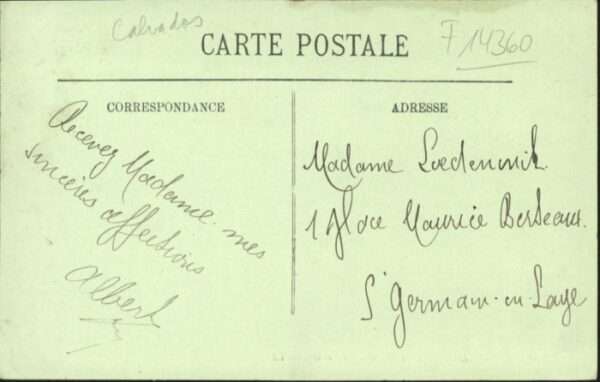 Calvados
F 14360
CARTE POSTALE
CORRESPONDANCE
Recevez Madame mes
sincères affections
Albert
ADRESSE
Madame
1 Place Maurice Berteaux.
St Germain-en-Laye